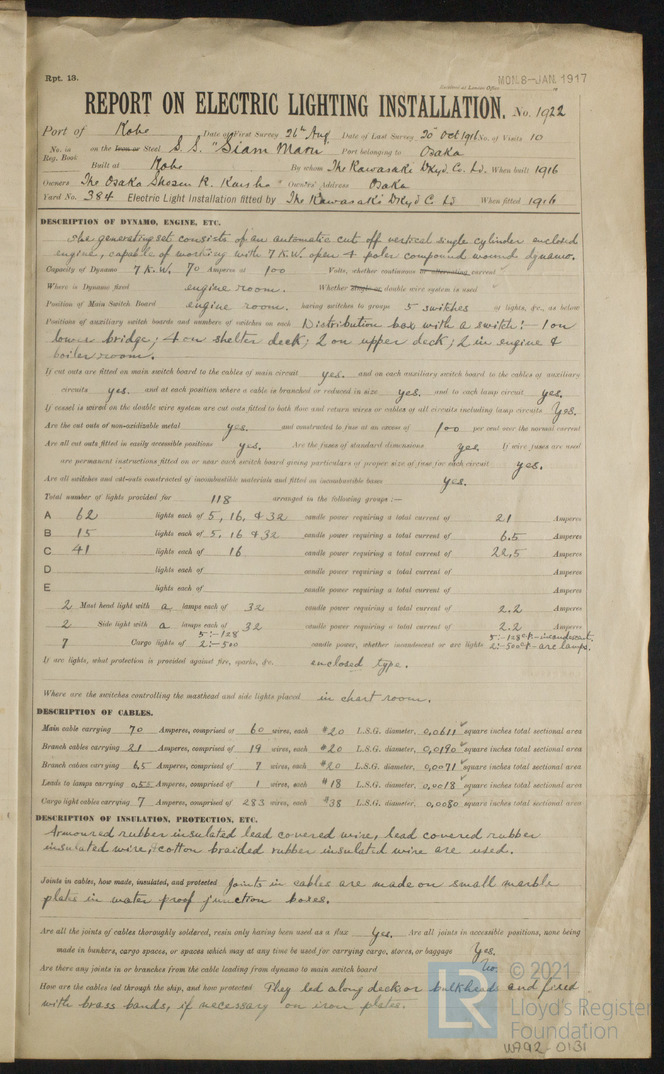 Rpt. 13.
MON. 8-JAN 1917
Received at London Office
REPORT ON ELECTRIC LIGHTING INSTALLATION. No. 1922
Port of Kobe Date of First Survey 26th Aug Date of Last Survey 20th Oct 1916 No. of Visits 10
No. in Reg. Book on the Iron or Steel S.S. "Siam Maru Port belonging to Osaka
Built at Kobe By whom The Kawasaki Dkyd. Co. Ld. When built 1916
Owners The Osaka Shosen K. Kaisha Owners' Address Osaka
Yard No. 384 Electric Light Installation fitted by The Kawasaki Dkyd C. Ld When fitted 1916
DESCRIPTION OF DYNAMO, ENGINE, ETC.
The generating set consists of an automatic cut off vertical single cylinder enclosed
engine, capable of working with 7 K.W. open 4 poler compound wound dynamo.
Capacity of Dynamo 7 K.W. 70 Amperes at 100 Volts, whether continuous or alternating current
Where is Dynamo fixed engine room. Whether single or double wire system is used "
Position of Main Switch Board engine room. having switches to groups 5 switches of lights, &c., as below
Positions of auxiliary switch boards and numbers of switches on each Distribution box with a switch:- 1 on
lower bridge; 4 on shelter deck; 2 on upper deck; 2 in engine &
boiler room.
If cut outs are fitted on main switch board to the cables of main circuit yes. and on each auxiliary switch board to the cables of auxiliary
circuits yes. and at each position where a cable is branched or reduced in size yes. and to each lamp circuit yes.
If vessel is wired on the double wire system are cut outs fitted to both flow and return wires or cables of all circuits including lamp circuits Yes.
Are the cut outs of non-oxidizable metal yes. and constructed to fuse at an excess of 100 per cent over the normal current
Are all cut outs fitted in easily accessible positions yes. Are the fuses of standard dimensions yes. If wire fuses are used
are permanent instructions fitted on or near each switch board giving particulars of proper size of fuse for each circuit yes.
Are all switches and cut-outs constructed of incombustible materials and fitted on incombustible bases yes.
Total number of lights provided for 118 arranged in the following groups :—
A 62 lights each of 5, 16, & 32 candle power requiring a total current of 21 Amperes
B 15 lights each of 5, 16 & 32 candle power requiring a total current of 6.5 Amperes
C 41 lights each of 16 candle power requiring a total current of 22,5 Amperes
D lights each of candle power requiring a total current of Amperes
E lights each of candle power requiring a total current of Amperes
2 Mast head light with a lamps each of 32 candle power requiring a total current of 2.2 Amperes
2 Side light with a lamps each of 32 candle power requiring a total current of 2.2 Amperes
7 Cargo lights of 5:-128 2:-500 candle power, whether incandescent or arc lights 5:-128 cp-incandescent. 2:-500 cp-arc lamps.
If arc lights, what protection is provided against fire, sparks, &c. enclosed type.
Where are the switches controlling the masthead and side lights placed in chart room.
DESCRIPTION OF CABLES.
Main cable carrying 70 Amperes, comprised of 60 wires, each #20 L.S.G. diameter, 0,0611 square inches total sectional area
Branch cables carrying 21 Amperes, comprised of 19 wires, each #20 L.S.G. diameter, 0,0190 square inches total sectional area
Branch cables carrying 6,5 Amperes, comprised of 7 wires, each #20 L.S.G. diameter, 0,0071 square inches total sectional area
Leads to lamps carrying 0,55 Amperes, comprised of 1 wires, each #18 L.S.G. diameter, 0,0018 square inches total sectional area
Cargo light cables carrying 7 Amperes, comprised of 283 wires, each #38 L.S.G. diameter, 0,0080 square inches total sectional area
DESCRIPTION OF INSULATION, PROTECTION, ETC.
Armoured rubber insulated lead covered wire, lead covered rubber
insulated wire, & cotton braided rubber insulated wire are used.
Joints in cables, how made, insulated, and protected Joints in cables are made on small marble
plate in water proof junction boxes.
Are all the joints of cables thoroughly soldered, resin only having been used as a flux Yes. Are all joints in accessible positions, none being
made in bunkers, cargo spaces, or spaces which may at any time be used for carrying cargo, stores, or baggage Yes.
Are there any joints in or branches from the cable leading from dynamo to main switch board No.
How are the cables led through the ship, and how protected They led along deck or bulkheads and fixed
with brass bands, if necessary on iron plates.
LR
© 2021
Lloyd's Register
Foundation
W792-0131